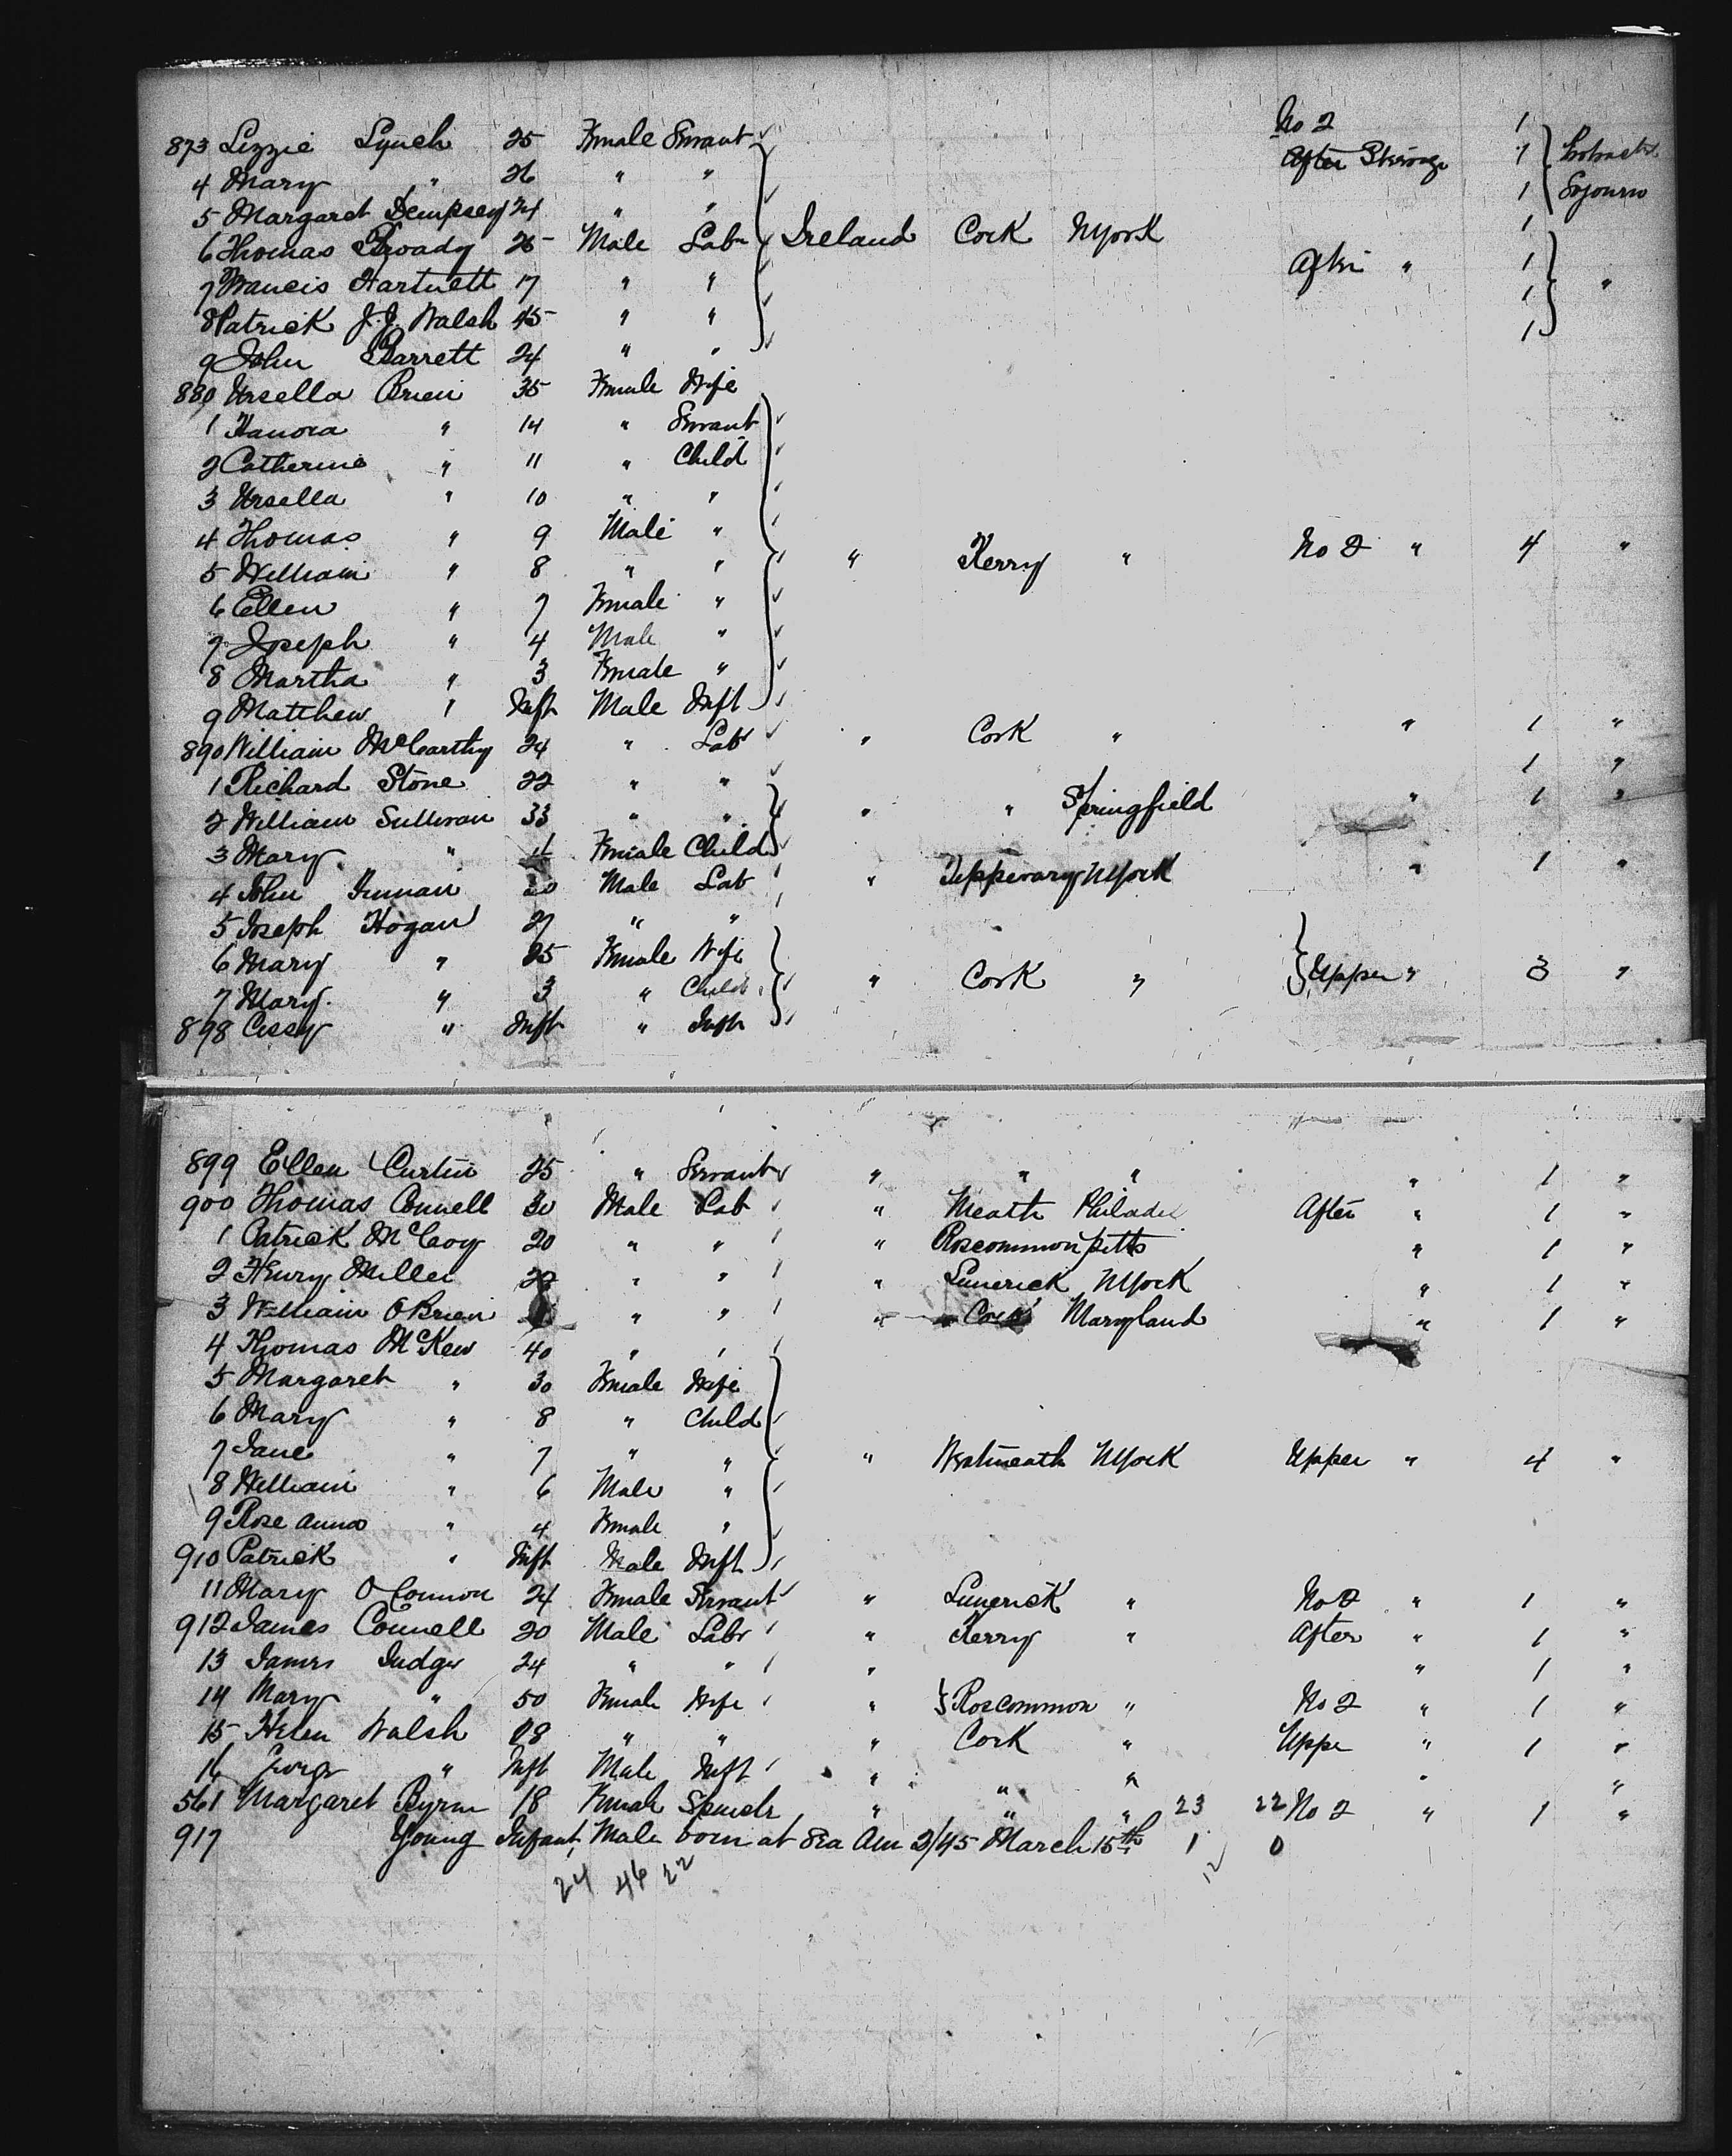 873 Lizzie Lynch 25 Female Servant No 2 1
4 Mary " 26 " " After Steerage 1 Protracted
5 Margaret Dempsey 24 " " 1 Sojourn
6 Thomas Broady 25 Male Labr Ireland Cork NYork 1
7 Francis Hartnett 17 " " After " 1 "
8 Patrick J.J. Walsh 45 " " 1
9 John Barrett 24 " " 1
880 Ursella Brien 35 Female Wife
1 Hanora " 14 " Servant
2 Catherine " 11 " Child
3 Ursella " 10 " "
4 Thomas " 9 Male "
5 William " 8 " " " Kerry " No 2 " 4 "
6 Ellen " 7 Female "
7 Joseph " 4 Male "
8 Martha " 3 Female "
9 Matthew " Inft Male Inft
890 William McCarthy 24 " Labr " Cork " " 1 "
1 Richard Stone 22 " " 1 "
2 William Sullivan 33 " " " " Springfield " 1 "
3 Mary " 4 Female Child
4 John 20 Male Lab " Tipperary NYork " 1 "
5 Joseph Hogan 27 " "
6 Mary " 25 Female Wife
7 Mary " 3 " Child " Cork " Upper " 3 "
898 Cissy " Inft " Inft
899 Ellen Curtin 25 " Servant " " " " 1 "
900 Thomas Connell 30 Male Lab " Meath Philadel After " 1 "
1 Patrick McCoy 20 " " " Roscommon pitts " 1 "
2 Henry Miller 22 " " " Limerick NYork " 1 "
3 William OBrien " " " Cork Maryland " 1 "
4 Thomas McKew 40 " "
5 Margaret " 30 Female Wife
6 Mary " 8 " Child
7 Jane " 7 " " " Westmeath NYork Upper " 4 "
8 William " 6 Male "
9 Rose anna " 4 Female "
910 Patrick " Inft Male Inft
11 Mary OConnor 24 Female Servant " Limerick " No 2 " 1 "
912 James Connell 20 Male Labr " Kerry " After " 1 "
13 James Judge 24 " " " " 1 "
14 Mary " 50 Female Wife " Roscommon " No 2 " 1 "
15 Helen Walsh 28 " " " Cork " Uppe " 1 "
16 George " Inft Male Inft " " " " "
561 Margaret Byrne 18 Female Spinstr " " " 23 22 No 2 " 1 "
917 Young Infant, Male born at Sea Am 2/45 March 15th 1 0
24 46 22 12